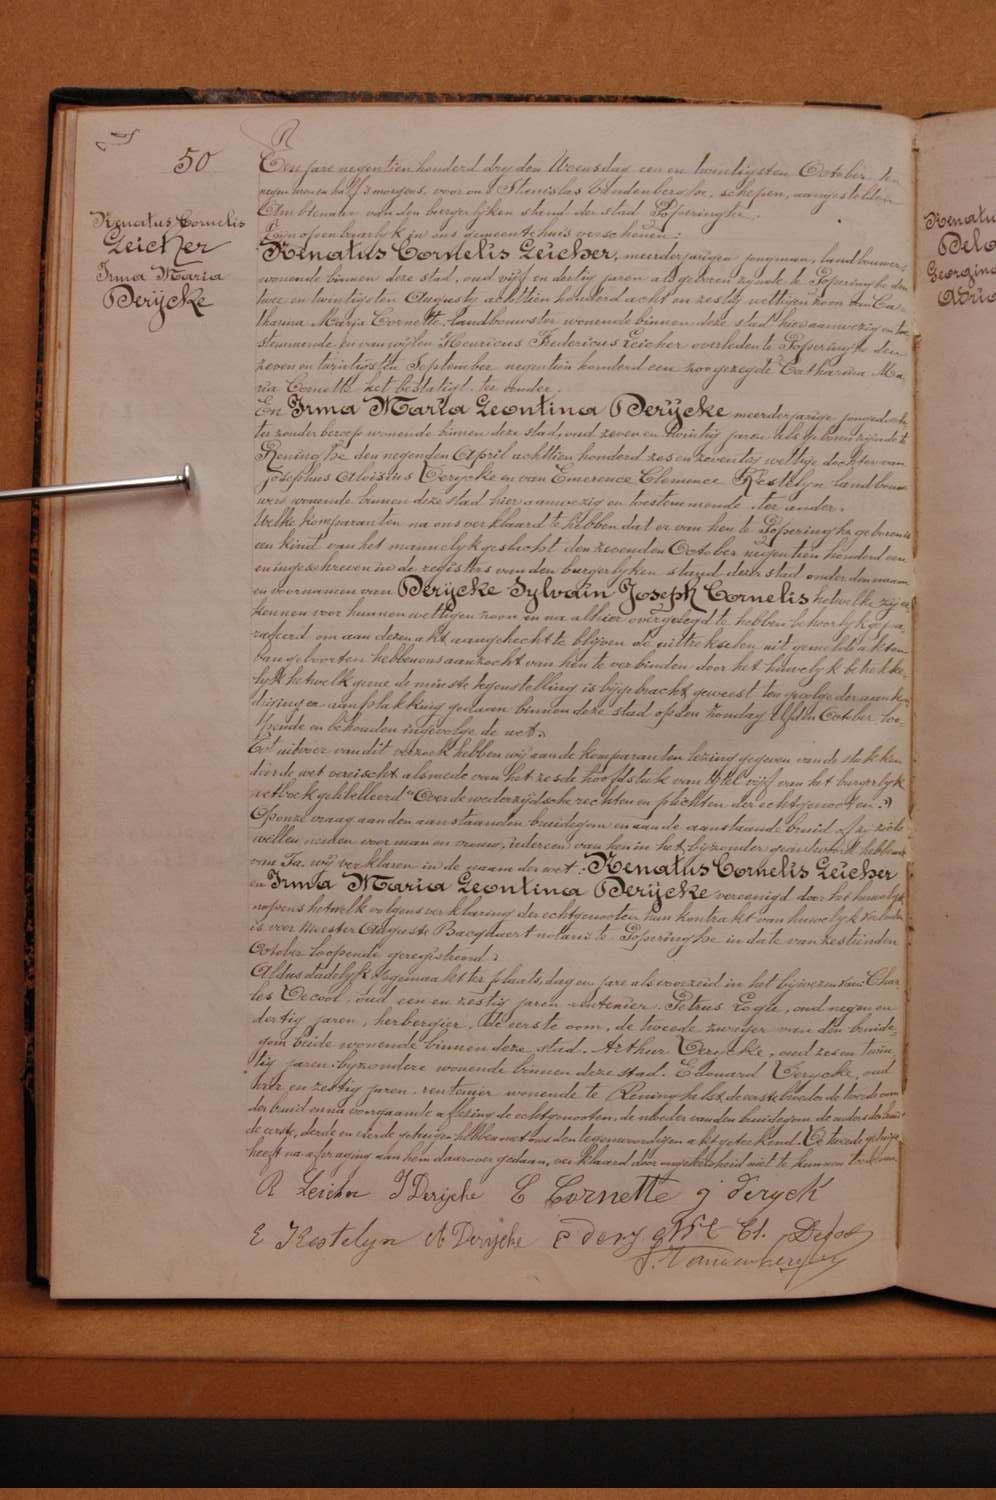 50
Renatus Cornelis
Leicher
Irma Maria
Derÿcke
Een jare negentien honderd dry den Woensdag een en twintigsten October te
negen uren en half 's morgens, voor ons Stanislas Vandenberghe, schepen, aangestelden
Ambtenaar van den burgerlijken stand der stad Poperinghe
Zijn openbaarlyk in ons gemeentehuis verschenen:
Renatus Cornelis Leicher, meerderjarigen jongman, landbouwer
wonende binnen deze stad, oud vijf en dertig jaren als geboren zijnde te Poperinghe den
twee en twintigsten Augusty achttien honderd acht en zestig wettigen zoon van Ca-
tharina Maria Cornette, landbouwster wonende binnen deze stad hier aanwezig en toe-
stemmende en van wijlen Henricus Fredericus Leicher overleden te Poperinghe den
zeven en twintigsten September negentien honderd een zoo gezegde Catharina Ma-
ria Cornette het bestatigt ter eender.
En Irma Maria Leontina Derÿcke meerderjarige jongedoch-
ter zonder beroep wonende binnen deze stad, oud zeven en twintig jaren als geboren zijnde te
Reninghe den negenden April achttien honderd zes en zeventig wettige dochter van
Josephus Aloisius Derycke en van Emerence Clemence Kestelyn landbou-
wers wonende binnen deze stad hier aanwezig en toestemmende ter ander.
Welke komparanten na ons verklaard te hebben dat er van hen te Poperinghe geboren is
een kind van het mannelyk geslacht den zevenden October negentien honderd een
en ingeschreven in de registers van den burgerlyken stand dezer stad onder den naam
en voornamen van Derÿcke Sylvain Joseph Cornelis hetwelke zij er-
kennen voor hunnen wettigen zoon en na alhier overgelegd te hebben behoorlyk gepa-
rafeerd om aan dezen akt aangehecht te blijven de uittreksels uit gemelde akten
van geboorten hebben ons aanzocht van hen te verbinden door het huwelyk betrekke-
lyk hetwelk geene de minste tegenstelling is bijgebracht geweest ten gevolge der aankon-
diging en aanplakking gedaan binnen deze stad op den zondag elfden October loo-
pende en behouden ingevolge de wet.
Tot uitvoer van dit verzoek hebben wij aan de komparanten lezing gegeven van de stukken
door de wet vereischt alsmede van het zesde hoofdstuk van titel vijf van het burgerlyk
wetboek getiteleerd "Over de wederzijdsche rechten en plichten der echtgenooten."
Op onze vraag aan den aanstaanden bruidegom en aan de aanstaande bruid of zij zich
willen nemen voor man en vrouw, iedereen van hen in het bijzonder geantwoord hebbende
van Ja, wij verklaren in de naam der wet: Renatus Cornelis Leicher
en Irma Maria Leontina Derÿcke vereenigd door het huwelyk
nopens hetwelk volgens verklaring der echtgenooten hun kontrakt van huwelyk verleden
is voor Meester Auguste Bacquaert notaris te Poperinghe in date van zestienden
October loopende geregistreerd.
Aldus dadelyk opgemaakt ter plaats, dag en jare als voorzeid in het bijwezen van Char-
les Decool, oud een en zestig jaren rentenier, Petrus Logie, oud negen en
dertig jaren, herbergier, de eerste oom, de tweede zwager van den bruide-
gom beide wonende binnen deze stad, Arthur Derycke, oud zes en twin-
tig jaren, byzondere wonende binnen deze stad, Edouard Derycke, oud
vier en zestig jaren, rentenier wonende te Reninghelst, de eerste broeder, de tweede oom
der bruid en na voorgaande aflezing de echtgenooten, de moeder van den bruidegom de ouders der bruid
de eerste, derde en vierde getuigen hebben met ons den tegenwoordigen akt geteekend. De tweede getuige
heeft na afvraging aan hem daarover gedaan, verklaard door ongeleerdheid niet te kunnen teekenen
R Leicher I Derijcke C Cornette J Deryck
E Kestelyn A Derijcke Ch. Decool
S. Vandenberghe
Renatu
Georgina